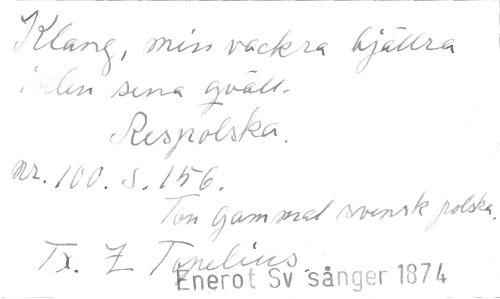 Klang, min vackra bjällra
i den sena qväll.
Respolska.
nr. 100. s. 156.
Ton gammal svensk polska.
Tx. Z Topelius.
Enerot Sv sånger 1874